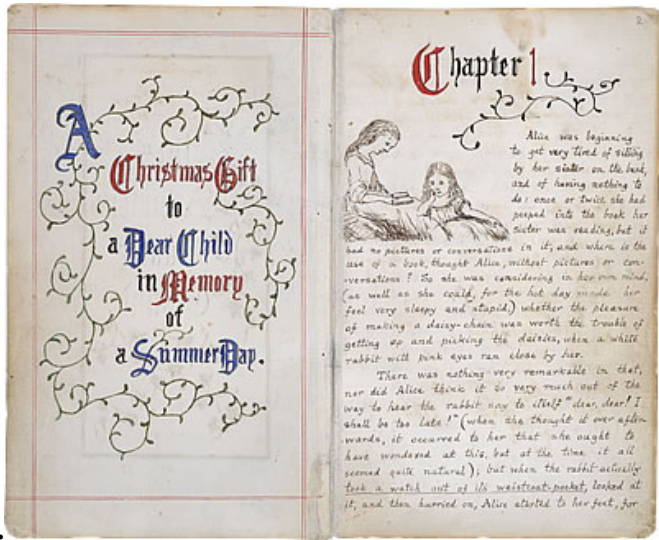 A
Christmas Gift
to
a Dear Child
in Memory
of
a Summer Day.
2.
Chapter 1.
Alice was beginning
to get very tired of sitting
by her sister on the bank,
and of having nothing to
do: once or twice she had
peeped into the book her
sister was reading, but it
had no pictures or conversations in it, and where is the
use of a book, thought Alice, without pictures or con-
-versations? So she was considering in her own mind,
(as well as she could, for the hot day made her
feel very sleepy and stupid,) whether the pleasure
of making a daisy-chain was worth the trouble of
getting up and picking the daisies, when a white
rabbit with pink eyes ran close by her.
There was nothing very remarkable in that,
nor did Alice think it so very much out of the
way to hear the rabbit say to itself "dear, dear! I
shall be too late!" (when she thought it over after-
wards, it occurred to her that she ought to
have wondered at this, but at the time it all
seemed quite natural); but when the rabbit actually
took a watch out of its waistcoat-pocket, looked at
it, and then hurried on, Alice started to her feet, for